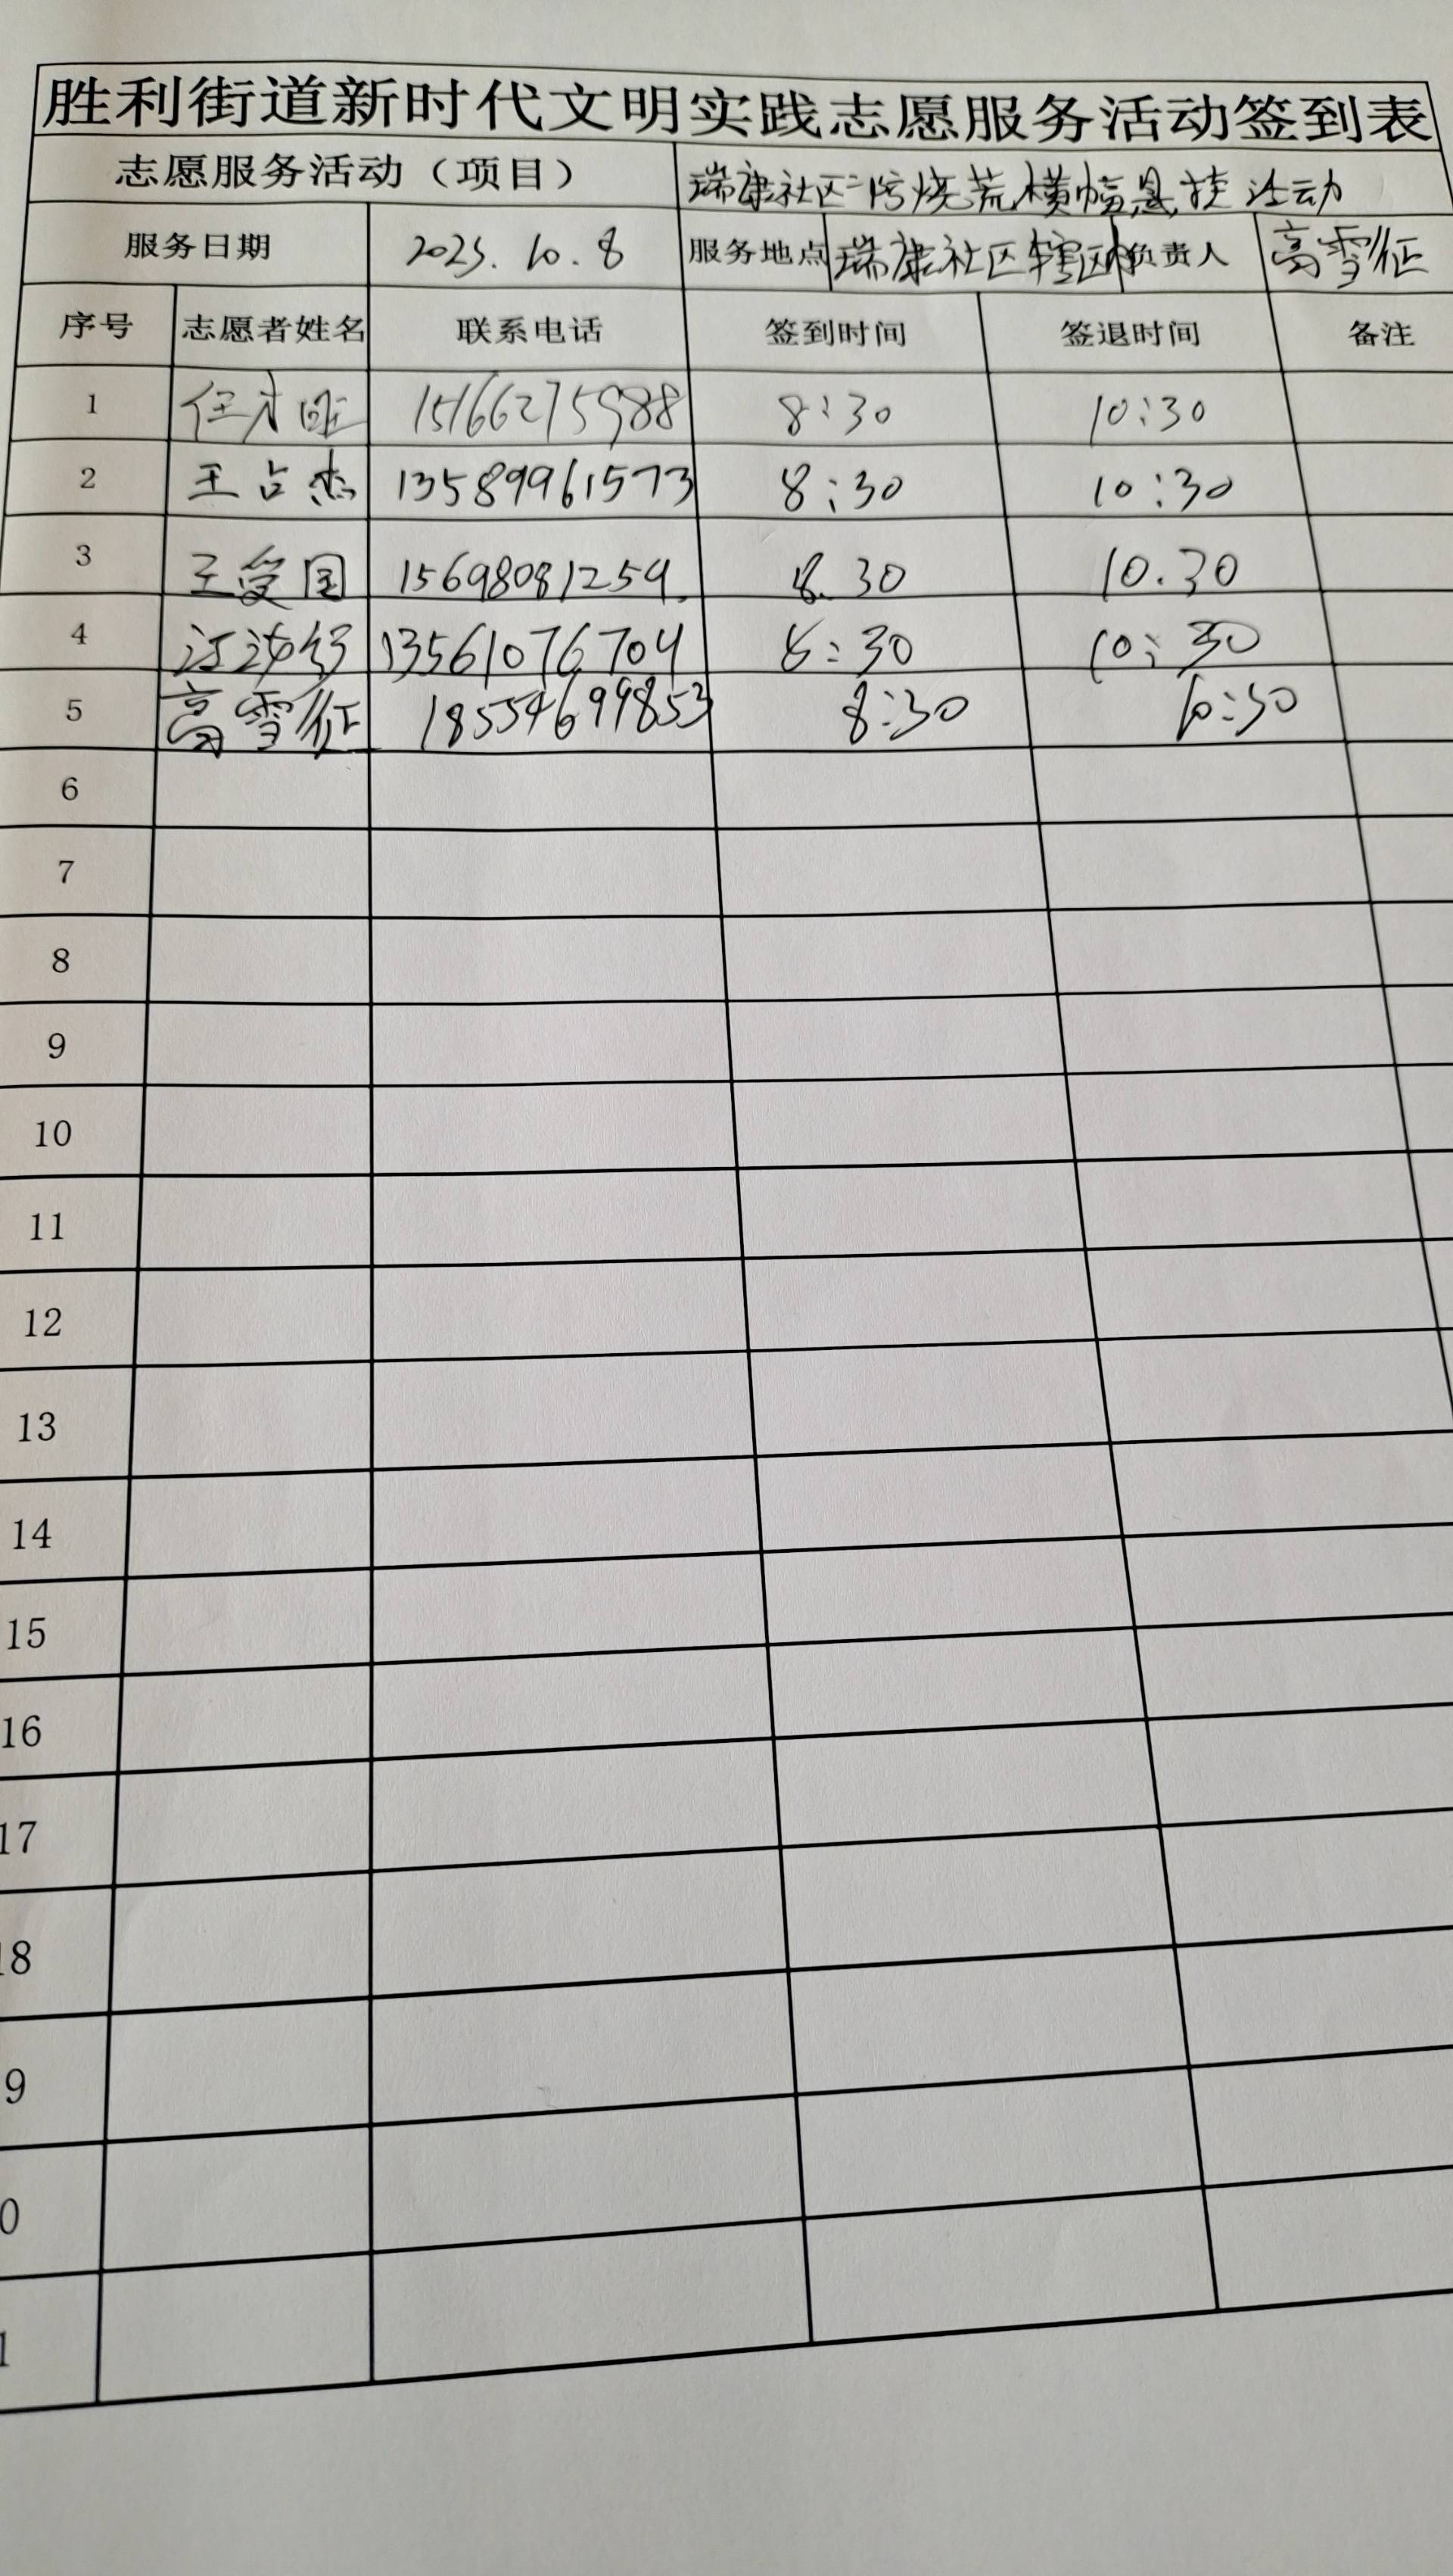 胜利街道新时代文明实践志愿服务活动签到表
志愿服务活动（项目） 瑞康社区防烧荒横幅悬挂活动
服务日期 2025.10.8 服务地点 瑞康社区辖区内 负责人 高雪征
序号 志愿者姓名 联系电话 签到时间 签退时间 备注
1 任才旺 15166275988 8:30 10:30
2 王占杰 13589961573 8:30 10:30
3 王爱国 15698081259 8.30 10.30
4 13561076704 8:30 10:30
5 高雪征 18554699853 8:30 10:30
6
7
8
9
10
11
12
13
14
15
16
17
18
9
0
1